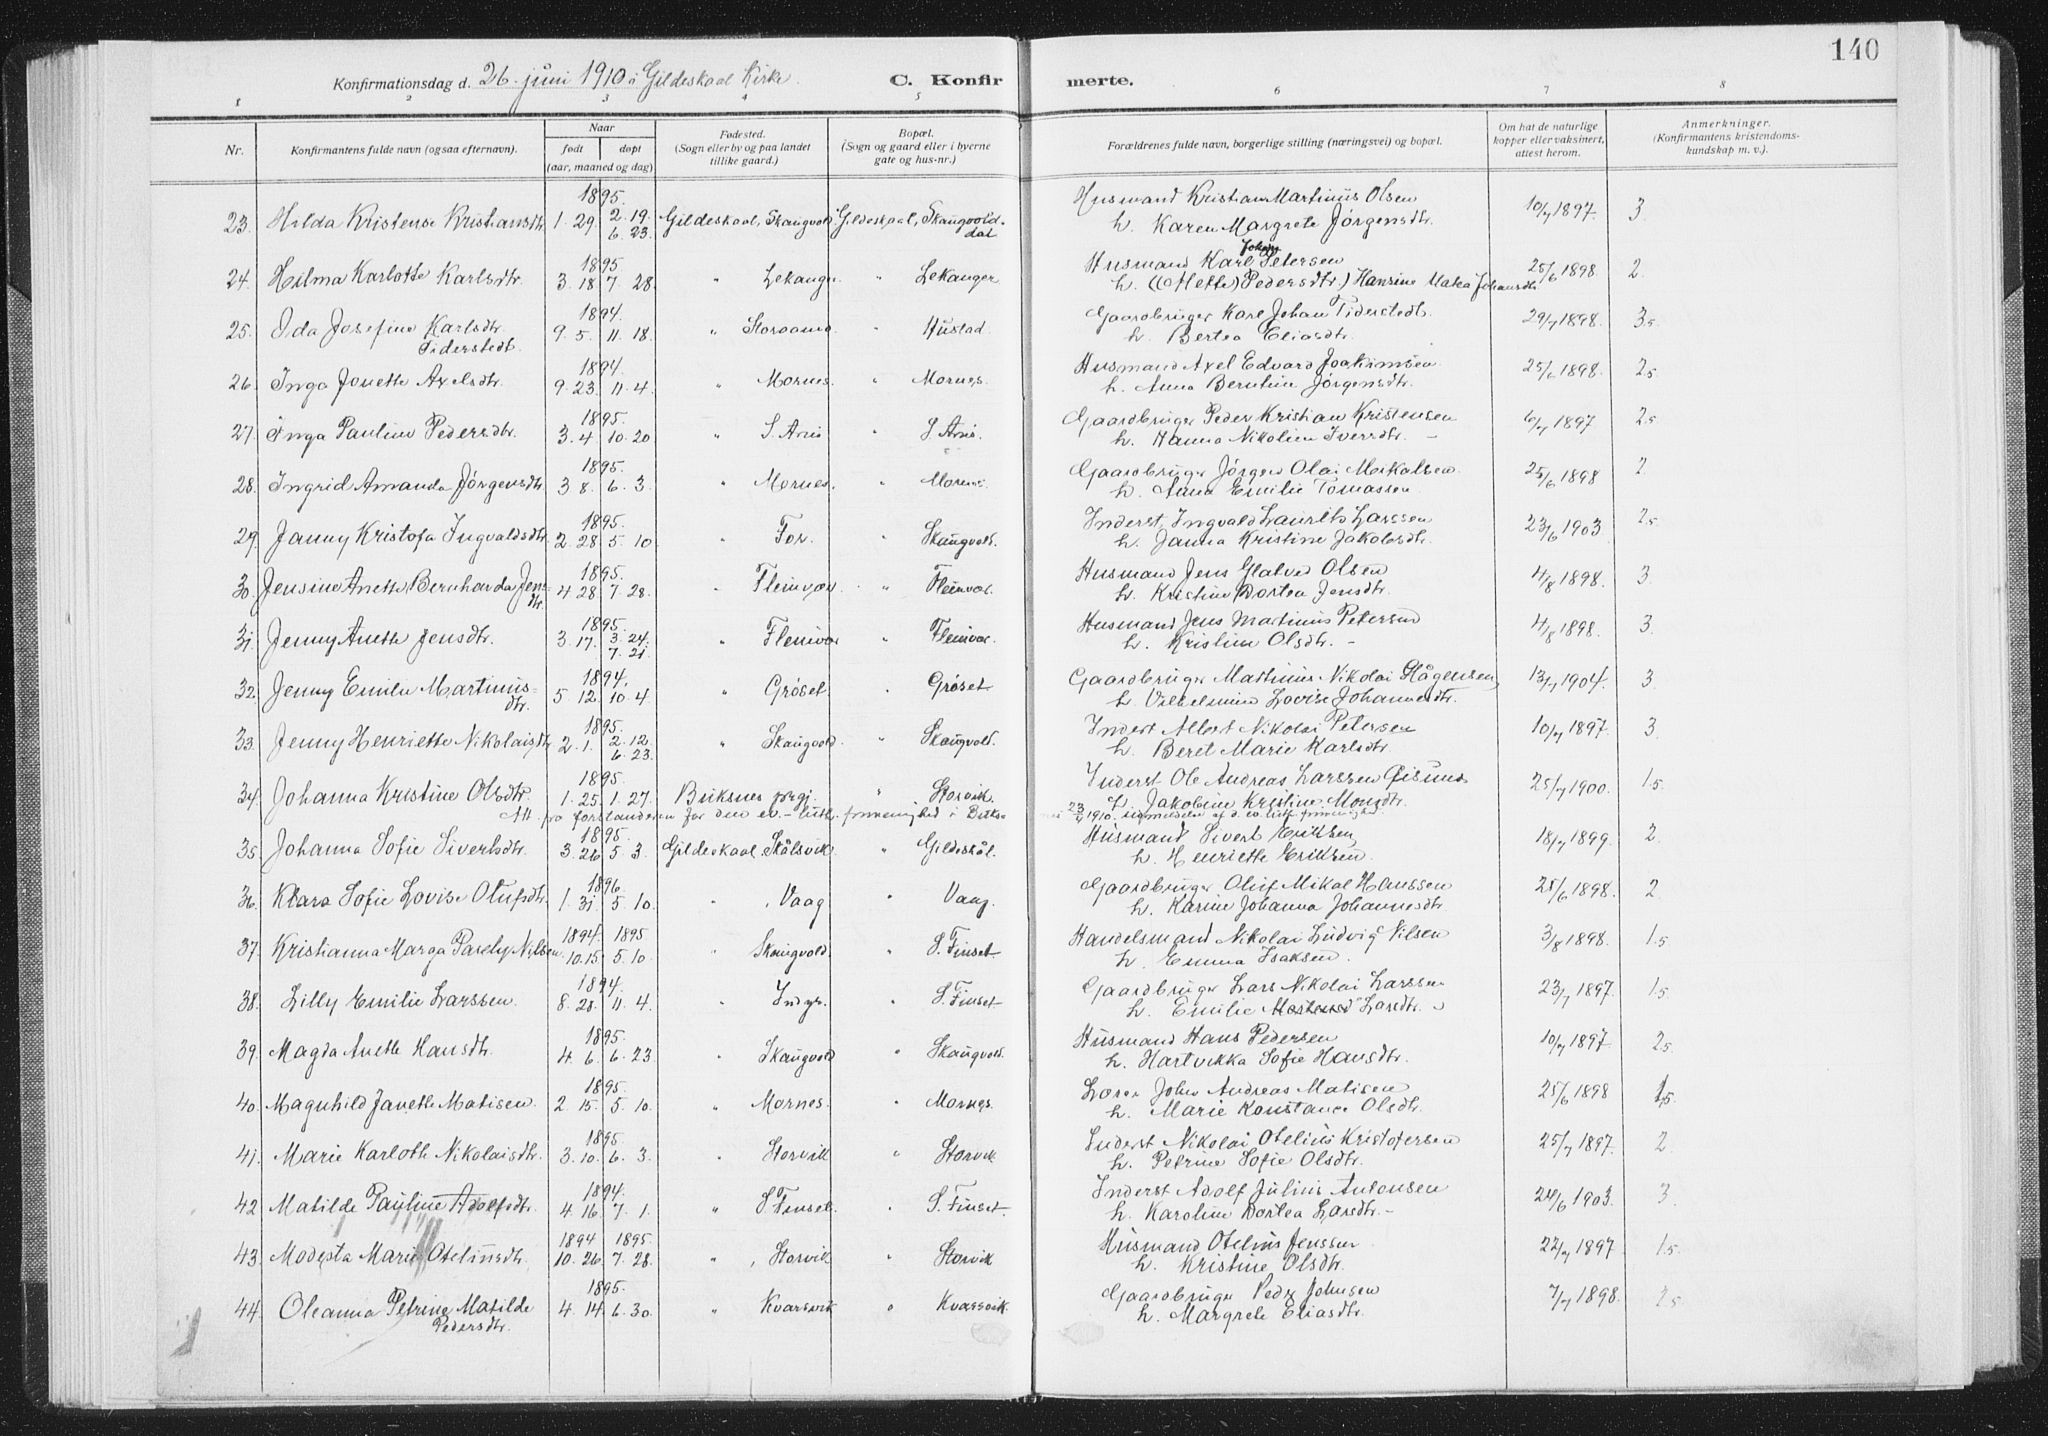 140
Konfirmationsdag d. 26. juni 1910 i Gildeskaal Kirke. C. Konfirmerte.
1 2 3 4 5 6 7 8
Nr. Konfirmantens fulde navn (ogsaa efternavn). Naar født døpt (aar, maaned og dag) Fødested. (Sogn eller by og paa landet tillike gaard.) Bopæl. (Sogn og gaard eller i byerne gate og hus-nr.) Forældrenes fulde navn, borgerlige stilling (næringsvei) og bopæl. Om hat de naturlige kopper eller vaksinert, attest herom. Anmerkninger. (Konfirmantens kristendomskundskap m. v.).
1895.
23. Hilda Kristense Kristiansdtr. 1. 29. 2. 19. 6. 23. Gildeskaal, Skaugvold Gildeskaal, Skaugvolddal Husmand Kristian Martinus Olsen h. Karen Margrete Jørgensdtr. 10/7 1897. 3
1895
24. Hilma Karlotte Karlsdtr. 3. 18 7. 28. " Lekanger. " Lekanger Husmand Karl Johan Petersen h. (Mette) Pedersdtr.) Hansine Johansdtr. 25/6 1898. 2.
1894.
25. Ida Josefine Karlsdtr. Tiderstedt. 9. 5. 11. 18. " " Hustad. Gaardbruger Karl Johan Tiderstedt. h. Bertea Eliasdtr. 29/7 1898. 3.5
1894.
26. Inga Jonette Axelsdtr. 9. 23. 11. 4. " Mornes. " Mornes. Husmand Axel Edvard Joakimsen h. Anna Berntine Jørgensdtr. 25/6 1898. 2.5
1895.
27. Inga Pauline Pedersdtr. 3. 4. 10. 20 " S. Arnø " S. Arnø. Gaardbruger Peder Kristian Kristensen h. Hanna Nikoline Iversdtr. – 6/7 1897 2.5
1895.
28. Ingrid Amanda Jørgensdtr. 3 8. 6. 3. " Mornes. " Mornes. Gaardbruger Jørgen Olai Mikalsen. h. Anna Emilie Tomassen 25/6 1898 2.
1895.
29. Janny Kristofa Ingvaldsdtr. 2. 28. 5. 10. " For. " Skaugvold. Inderst, Ingvald Laurits Larssen h. Janna Kristine Jakobsdtr. 23/6 1903 2.5
1895.
30. Jensine Anette Bernharda Jensdtr. 4 28. 7. 28. " Fleinvær. " Fleinvær. Husmand Jens Glatved Olsen h. Kristine Dortea Jensdtr. 4/8 1898. 3.
1895.
31. Jenny Anette Jensdtr. 3. 17. 3. 24. 7. 21. " Fleinvær " Fleinvær. Husmand Jens Martinus Petersen h. Kristine Olsdtr. – 4/8 1898. 3.
1894.
32. Jenny Emilie Martinusdtr. 5 12. 10. 4. " Grøset. " Grøset Gaardbruger Martinus Nikolai Hågensen, h. Vilhelmine Lovise Johannesdtr. 13/7 1904. 3.
1895.
33. Jenny Henriette Nikolaisdtr. 2. 1. 2. 12. 6. 23. " Skaugvold. " Skaugvold. Inderst Albert Nikolai Petersen h. Beret Marie Karlsdtr. 10/7 1897. 3.
1895.
34. Johanna Kristine Olsdtr. 1. 25. 1. 27. Buksnes prgj. " Storvik. Inderst Ole Andreas Larssen h. Jakobine Kristine Monsdtr. 25/7 1900. 1.5
Att. fra forstanderen for den ev.-luth. frimenighed i Buks- 23/4 1910. udmeldelse af d. ev. luth frimenighed.
1895.
35. Johanna Sofie Sivertsdtr. 3. 26 5. 3. Gildeskaal Skålsvik. " Gildeskål. Husmand Sivert Eriksen, h. Henriette Eriksen. 18/7 1899. 2.
1896.
36. Klara Sofie Lovise Olufsdtr. 1. 31. 5. 10. " Vaag " Vaag. Gaardbruger Oluf Mikal Hanssen h. Karine Johanna Johannesdtr. 25/6 1898. 2.
1894. 1895
37. Kristianna Marga Nilsen. 10. 15. 5. 10. " Skaugvold. " S. Finset. Handelsmand Nikolai Ludvig Nilsen h. Emma Isaksen. 3/8 1898. 1.5
1894.
38. Lilly Emilie Larssen. 8. 28. 11. 4. " Indyr. " S. Finset. Gaardbruger Lars Nikolai Larssen h. Emilie Larsdtr. 23/7 1897. 1.5
1895
39. Magda Anette Hansdtr. 4 6. 6. 23. " Skaugvold " Skaugvold. Husmand Hans Pedersen h. Hartvikka Sofie Hansdtr. 10/7 1897 2.5
1895.
40. Magnhild Janette Matisen. 2 15. 5. 10. " Mornes. " Mornes. Lærer John Andreas Matisen h. Marie Konstance Olsdtr. 25/6 1898 1.5
1895.
41. Marie Karlotte Nikolaisdtr. 3. 10. 6. 3. " Storvik " Storvik Inderst Nikolai Otelius Kristofersen h. Petrine Sofie Olsdtr. 25/7 1897. 2
1894.
42. Matilde Pauline Adolfsdtr. 4. 16. 7. 1. " S. Finset. " S. Finset. Inderst Adolf Julius Antonsen h. Karoline Dortea Larsdtr. – 24/6 1903. 3.
1894 1895.
43. Modesta Marie Oteliusdtr. 10. 26 7. 28. " Storvik " Storvik Husmand Otelius Jenssen h. Kristine Olsdtr. 22/7 1897. 1.5
1895.
44. Oleanna Petrine Matilde Pedersdtr. 4. 14 6. 30. " Kvarsvik " Kvarsvik Gaardbruger Peder Johnsen h. Margrete Eliasdtr. 7/7 1898. 2.5